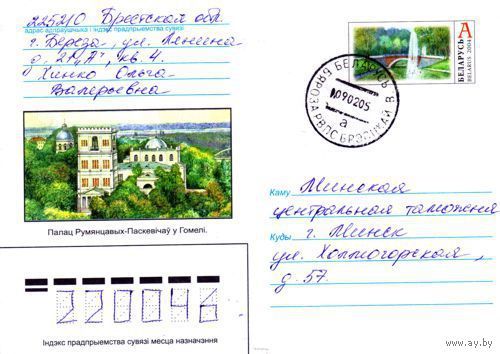 225210 Брестская обл.
адрас адпраўшчыка і індэкс прадпрыемства сувязі
г. Береза, ул. Ленина
д. 2 "А", кв. 4.
Хинко Ольга
Валерьевна
Палац Румянцавых-Паскевічаў у Гомелі.
220046
Індэкс прадпрыемства сувязі месца назначэння
БЕЛАРУСЬ A
BELARUS 2004
БЕЛАРУСЬ
090205
а
БЯРОЗА РВПС БРЭСЦКАЙ В.
Каму Минская
центральная таможня
Куды г. Минск
ул. Холмогорская,
д. 57.
www.ay.by